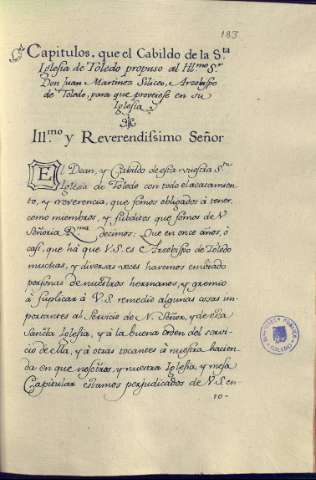 183
Capitulos, que el Cabildo de la S.ta
Iglesia de Toledo propuso al Ill.mo S.r
Don Juan Martinez Siliceo, Arzobispo
de Toledo, para que proveiesse en su
Iglesia
Ill.mo y Reverendissimo Señor
El Dean, y Cabildo de esta vuestra S.ta
Iglesia de Toledo con todo el acatamien-
to, y reverencia, que somos obligados á tener,
como miembros, y subditos que somos de V.
Señoria R.ma decimos: Que en once años, ó
casi, que há que V.S. es Arzobispo de Toledo
muchas, y diversas veces havemos embiado
personas de nuestros hermanos, y gremio
á suplicar á V.S. remedio algunas cosas im-
portantes al servicio de N. Señor, y de esta
Sancta Iglesia, y á la buena orden del servi-
cio de ella, y á otras tocantes á nuestra hacien-
da en que nosotros, y nuestra Iglesia, y mesa
Capitular estamos perjudicados de V.S. en-
ro-